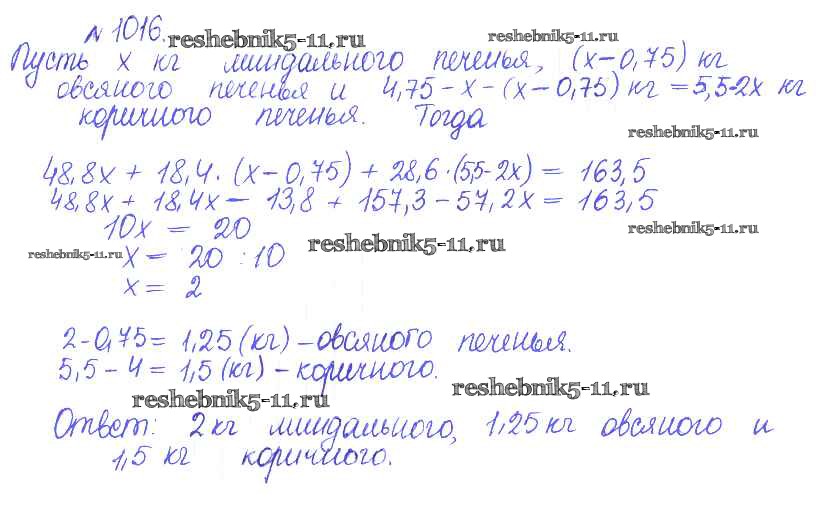 № 1016. reshebnik5-11.ru reshebnik5-11.ru
Пусть x кг миндального печенья, (x-0,75) кг
овсяного печенья и 4,75-x-(x-0,75) кг = 5,5-2x кг
коричного печенья. Тогда
reshebnik5-11.ru
48,8x + 18,4·(x-0,75) + 28,6·(5,5-2x) = 163,5
48,8x + 18,4x - 13,8 + 157,3 - 57,2x = 163,5
10x = 20
reshebnik5-11.ru reshebnik5-11.ru
reshebnik5-11.ru x = 20 : 10
x = 2
2-0,75 = 1,25 (кг) - овсяного печенья.
5,5 - 4 = 1,5 (кг) - коричного.
reshebnik5-11.ru reshebnik5-11.ru
Ответ: 2 кг миндального, 1,25 кг овсяного и
1,5 кг коричного.